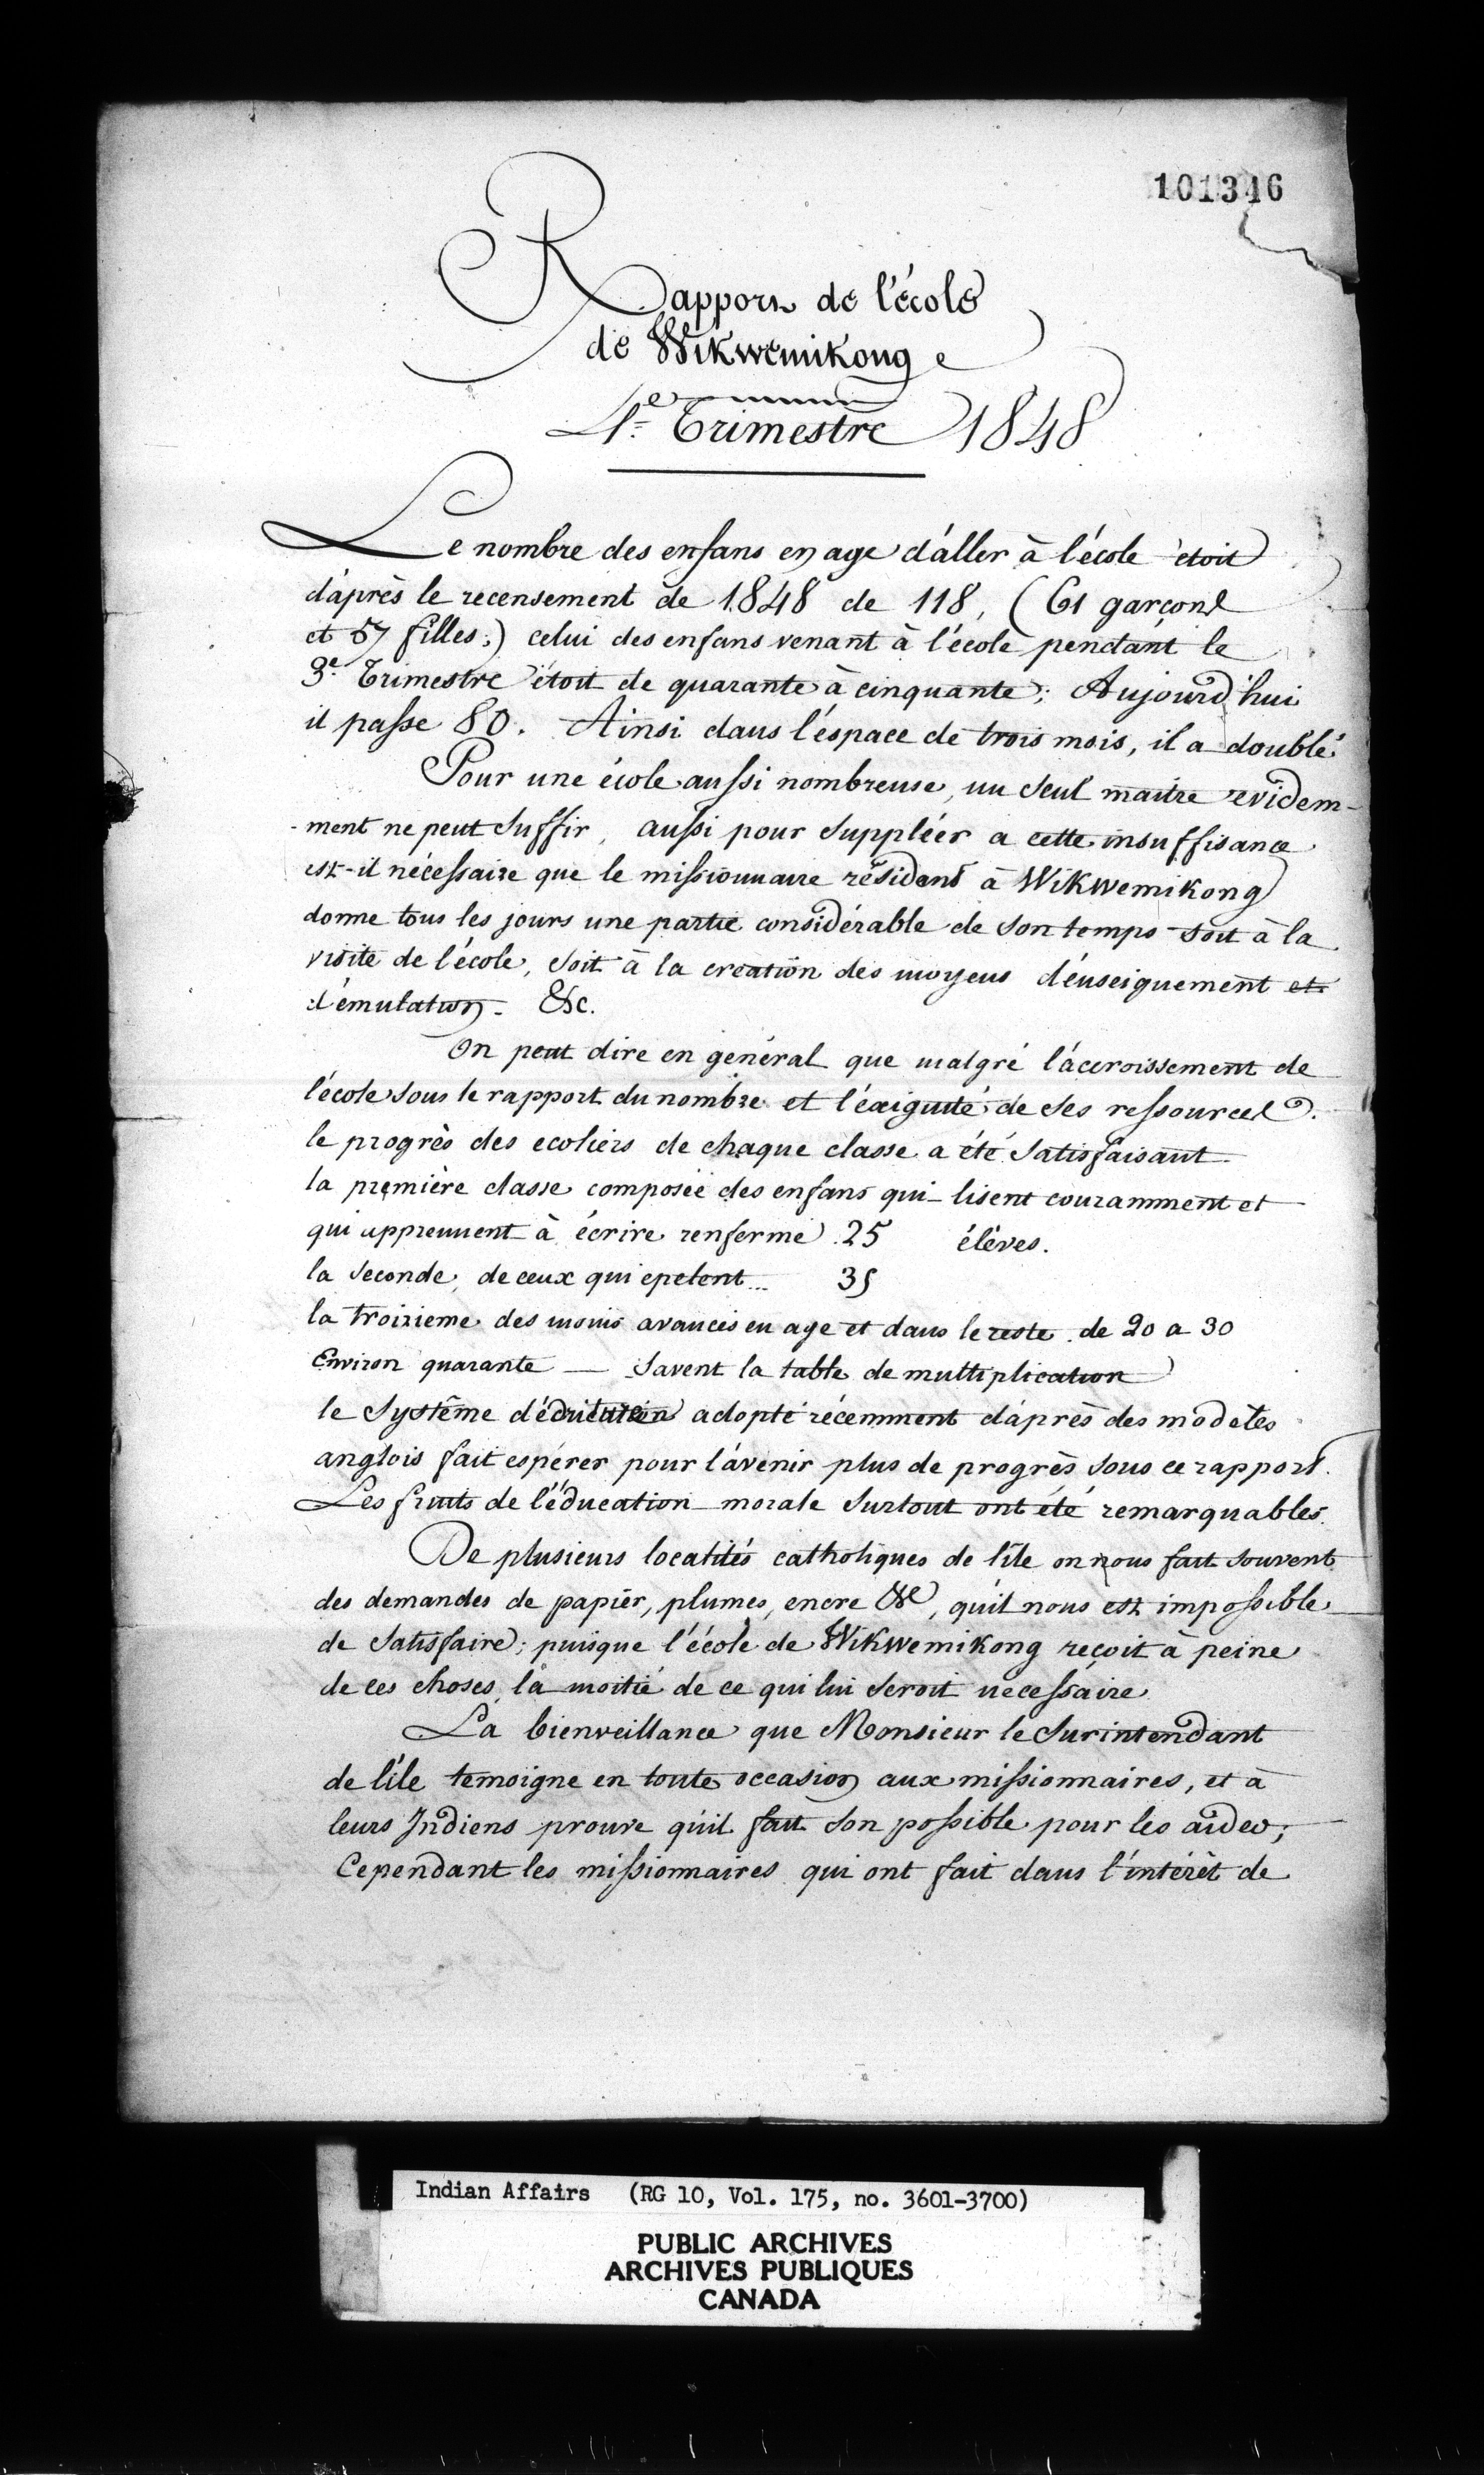 101346
Rapport de l'école
de Wikwemikong
4.e Trimestre 1848
Le nombre des enfans en age d'aller à l'école étoit
d'après le recensement de 1848 de 118, (61 garçons
et 57 filles;) celui des enfans venant à l'école pendant le
3.e Trimestre étoit de quarante à cinquante; Aujourd'hui
il passe 80. Ainsi dans l'espace de trois mois, il a doublé.
Pour une école aussi nombreuse, un seul maitre evidem-
-ment ne peut suffir, aussi pour suppléer a cette insuffisance
est-il nécessaire que le missionnaire résidant à Wikwemikong
donne tous les jours une partie considérable de son temps soit à la
visite de l'école, soit à la creation des moyens d'enseignement et
d'émulation - &c.
On peut dire en général que malgré l'accroissement de
l'école sous le rapport du nombre et l'éxiguité de ses ressources.
le progrès des ecoliers de chaque classe a été satisfaisant.
la première classe composée des enfans qui lisent couramment et
qui apprennent à écrire renferme 25 élèves.
la seconde, de ceux qui epelent... 35
la troizieme des moins avancés en age et dans le reste de 20 a 30
Environ quarante — savent la table de multiplication
le système d'éducation adopté récemment d'après des modeles
anglois fait espérer pour l'avenir plus de progrès sous ce rapport.
Les fruits de l'éducation morale surtout ont été remarquables.
De plusieurs localités catholiques de l'ile on nous fait souvent
des demandes de papier, plumes, encre &c, qu'il nous est impossible
de satisfaire; puisque l'école de Wikwemikong reçoit à peine
de ces choses la moitié de ce qui lui seroit necessaire.
La bienveillance que Monsieur le Surintendant
de l'ile temoigne en toute occasion aux missionnaires, et à
leurs Indiens prouve qu'il fait son possible pour les aider;
Cependant les missionnaires qui ont fait dans l'intérêt de
Indian Affairs (RG 10, Vol. 175, no. 3601-3700)
PUBLIC ARCHIVES
ARCHIVES PUBLIQUES
CANADA